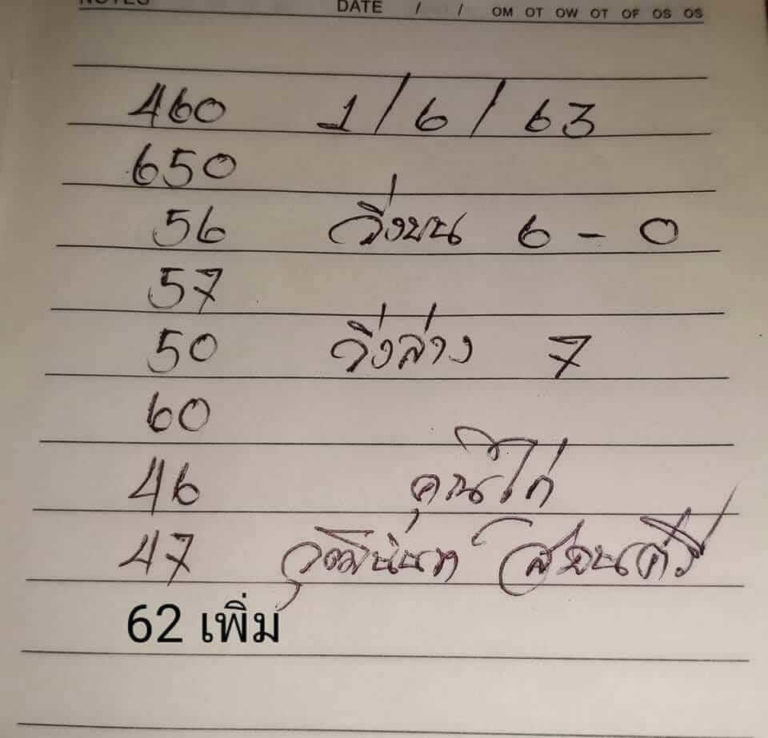 NOTES DATE / / OM OT OW OT OF OS OS
460 1/6/63
650
56 วิ่งบน 6 - 0
57
50 วิ่งล่าง 7
60
46 คุณไก่
47 วุฒินันท์
62 เพิ่ม